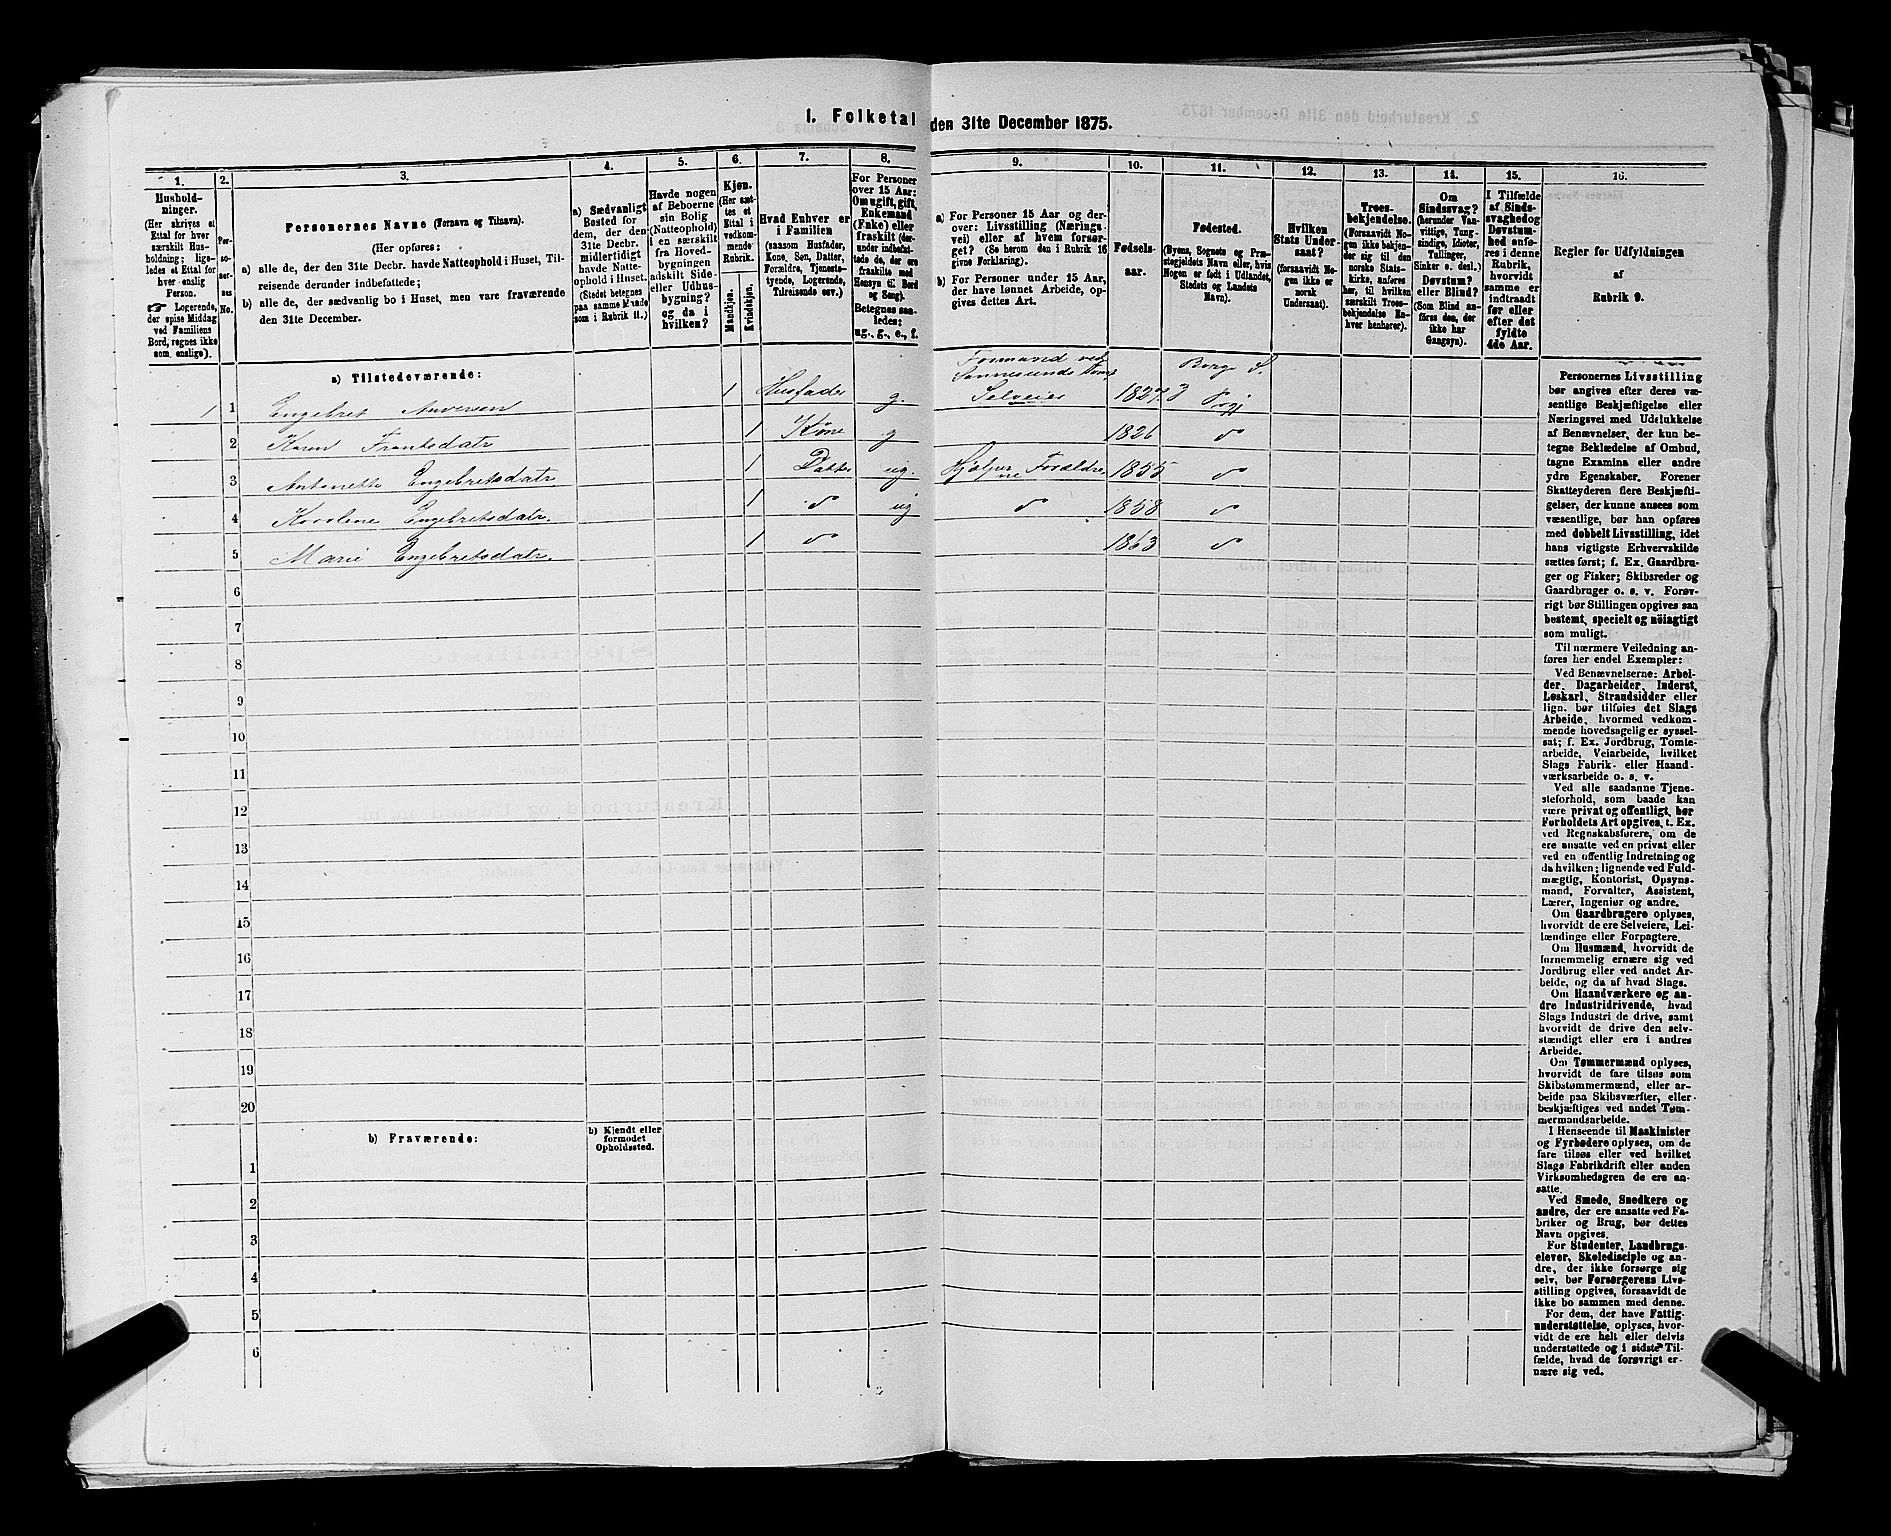 1. Folketal den 31te December 1875.
1. 2. 3. 4. 5. 6. 7. 8. 9. 10. 11. 12. 13. 14. 15. 16.
Hushold-
ninger.
(Her skrives et
Ettal for hver
særskilt Hus-
holdning; lige-
ledes et Ettal for
hver enslig
Person.
☛ Logerende,
der spise Middag
ved Familiens
Bord, regnes ikke
som enslige).
Per-
so-
ner-
nes
No.
Personernes Navne (Fornavn og Tilnavn).
(Her opføres:
a) alle de, der den 31te Decbr. havde Natteophold i Huset, Til-
reisende derunder indbefattede;
b) alle de, der sædvanlig bo i Huset, men vare fraværende
den 31te December.
a) Sædvanligt
Bosted for
dem, der den
31te Decbr.
midlertidigt
havde Natte-
ophold i Huset.
(Stedet betegnes
paa samme Maade
som i Rubrik 11.)
Havde nogen
af Beboerne
sin Bolig
(Natteophold)
i en særskilt
fra Hoved-
bygningen
adskilt Side-
eller Udhus-
bygning?
og da i
hvilken?
Kjøn.
(Her sæt-
tes et
Ettal i
vedkom-
mende
Rubrik.
Mandkjøn.
Kvindekjøn.
Hvad Enhver er
i Familien
(saasom Husfader,
Kone, Søn, Datter,
Forældre, Tjeneste-
tyende, Logerende,
Tilreisende osv.)
For Personer
over 15 Aar:
Om ugift, gift,
Enkemand
(Enke) eller
fraskilt (der-
under indbefat-
tede de, der ere
fraskilte med
Hensyn til Bord
og Seng).
Betegnes saa-
ledes:
ug., g., e., f.
a) For Personer 15 Aar og der-
over: Livsstilling (Nærings-
vei) eller af hvem forsør-
get? (Se herom den i Rubrik 16
givne Forklaring).
b) For Personer under 15 Aar,
der have lønnet Arbeide, op-
gives dettes Art.
Fødsels-
aar.
Fødested.
(Byens, Sognets og Præ-
stegjeldets Navn eller, hvis
Nogen er født i Udlandet,
Stedets og Landets
Navn).
Hvilken
Stats Under-
saat?
(forsaavidt No-
gen ikke er
norsk
Undersaat).
Troes-
bekjendelse.
(Forsaavidt No-
gen ikke bekjen-
der sig til den
norske Stats-
kirke, anføres
her, til hvilken
særskilt Troes-
bekjendelse En-
hver henhører).
Om
Sindssvag?
(herunder Van-
vittige, Tung-
sindige, Idioter,
Tullinger,
Sinker o. desl.)
Døvstum?
eller Blind?
(Som Blind an-
føres den, der
ikke har
Gangsyn).
I Tilfælde
af Sinds-
svaghed og
Døvstum-
hed anfø-
res i denne
Rubrik,
hvorvidt
samme er
indtraadt
før eller
efter det
fyldte
4de Aar.
Regler for Udfyldningen
af
Rubrik 9.
a) Tilstedeværende:
1 1 Engebret Andersen 1 Husfader g. Formand ved Selveier 1827 Borge S. Prgj
2 Karen Frantsdatr 1 Kone g 1826 d
3 Antonette Engebretsdatr 1 Datter ug. Hjelper Forældrene 1855 d
4 Karolene Engebretsdatr. 1 d ug d 1858 d
5 Marie Engebretsdatr. 1 d 1863 d
6
7
8
9
10
11
12
13
14
15
16
17
18
19
20
b) Fraværende:
b) Kjendt eller
formodet
Opholdssted.
1
2
3
4
5
6
Personernes Livsstilling
bør angives efter deres væ-
sentlige Beskjæftigelse eller
Næringsvei med Udelukkelse
af Benævnelser, der kun be-
tegne Beklædelse af Ombud,
tagne Examina eller andre
ydre Egenskaber. Forener
Skatteyderen flere Beskjæfti-
gelser, der kunne ansees som
væsentlige, bør han opføres
med dobbelt Livsstilling, idet
hans vigtigste Erhvervskilde
sættes først; f. Ex. Gaardbru-
ger og Fisker; Skibsreder og
Gaardbruger o. s. v. Forøv-
rigt bør Stillingen opgives saa
bestemt, specielt og nöiagtigt
som muligt.
Til nærmere Veiledning an-
føres her endel Exempler:
Ved Benævnelserne: Arbei-
der, Dagarbeider, Inderst,
Løskarl, Strandsidder eller
lign. bør tilføies det Slags
Arbeide, hvormed vedkom-
mende hovedsagelig er syssel-
sat; f. Ex. Jordbrug, Tomte-
arbeide, Veiarbeide, hvilket
Slags Fabrik- eller Haand-
værksarbeide o. s. v.
Ved alle saadanne Tjene-
steforhold, som baade kan
være privat og offentligt, bør
Forholdets Art opgives, t. Ex.
ved Regnskabsførere, om de
ere ansatte ved en privat eller
ved en offentlig Indretning og
da hvilken; lignende ved Fuld-
mægtig, Kontorist, Opsyns-
mand, Forvalter, Assistent,
Lærer, Ingeniør og andre.
Om Gaardbrugere oplyses,
hvorvidt de ere Selveiere, Lei-
lændinge eller Forpagtere.
Om Husmænd, hvorvidt de
fornemmelig ernære sig ved
Jordbrug eller ved andet Ar-
beide, og da af hvad Slags.
Om Haandværkere og an-
dre Industridrivende, hvad
Slags Industri de drive, samt
hvorvidt de drive den selv-
stændigt eller ere i andres
Arbeide.
Om Tømmermænd oplyses,
hvorvidt de fare tilsøs som
Skibstømmermænd, eller ar-
beide paa Skibsværfter, eller
beskjæftiges ved andet Tøm-
mermandsarbeide.
I Henseende til Maskinister
og Fyrbødere oplyses, om de
fare tilsøs eller ved hvilket
Slags Fabrikdrift eller anden
Virksomhedsgren de ere an-
satte.
Ved Smede, Snedkere og
andre, der ere ansatte ved Fa-
briker og Brug, bør dettes
Navn opgives.
For Studenter, Landbrugs-
elever, Skoledisciple og an-
dre, der ikke forsørge sig
selv, bør Forsørgerens Livs-
stilling opgives, forsaavidt de
ikke bo sammen med denne.
For dem, der have Fattig-
understøttelse, oplyses, hvor-
vidt de ere helt eller delvis
understøttede og i sidste Til-
fælde, hvad de forøvrigt er-
nære sig ved.